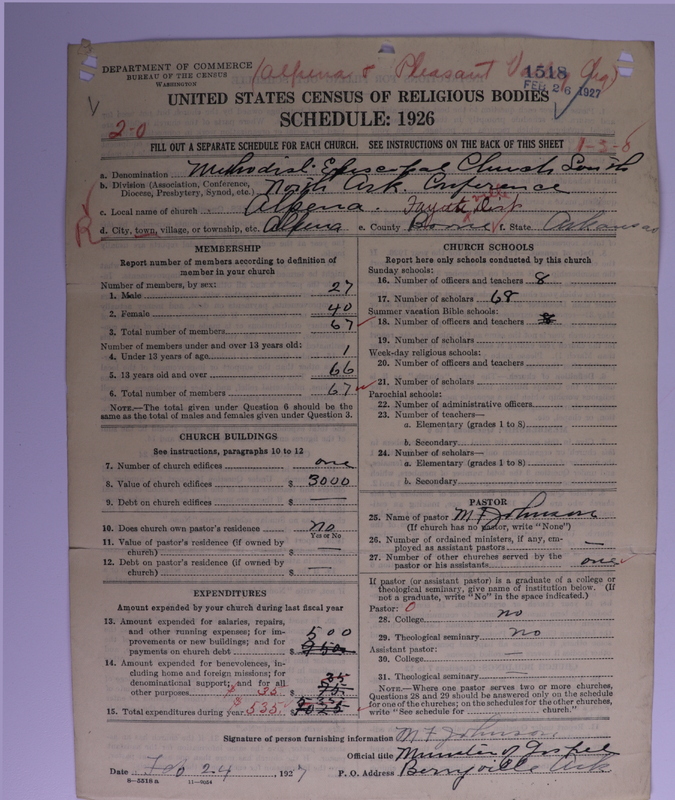 DEPARTMENT OF COMMERCE
BUREAU OF THE CENSUS
WASHINGTON
(Alpena & Pleasant
1518
FEB 26 1927
UNITED STATES CENSUS OF RELIGIOUS BODIES
SCHEDULE: 1926
2-0
FILL OUT A SEPARATE SCHEDULE FOR EACH CHURCH. SEE INSTRUCTIONS ON THE BACK OF THIS SHEET
1-3-0
a. Denomination Methodist Episcopal Church South
b. Division (Association, Conference, Diocese, Presbytery, Synod, etc.) North Ark. Conference
c. Local name of church Alpena. Fayette Dist
d. City, town, village, or township, etc. Alpena e. County Boone f. State Arkansas
R
MEMBERSHIP
Report number of members according to definition of
member in your church
Number of members, by sex:
1. Male 27
2. Female 40
3. Total number of members 67
Number of members under and over 13 years old:
4. Under 13 years of age 1
5. 13 years old and over 66
6. Total number of members 67
NOTE.—The total given under Question 6 should be the
same as the total of males and females given under Question 3.
CHURCH BUILDINGS
See instructions, paragraphs 10 to 12
7. Number of church edifices one
8. Value of church edifices $ 3000
9. Debt on church edifices $ —
10. Does church own pastor's residence No
Yes or No
11. Value of pastor's residence (if owned by
church) $ —
12. Debt on pastor's residence (if owned by
church) $ —
EXPENDITURES
Amount expended by your church during last fiscal year
13. Amount expended for salaries, repairs,
and other running expenses; for im- 500
provements or new buildings; and for
payments on church debt $
14. Amount expended for benevolences, in-
cluding home and foreign missions; for
denominational support; and for all 35
other purposes $ 35. $ 75.
15. Total expenditures during year 535. $ 535
CHURCH SCHOOLS
Report here only schools conducted by this church
Sunday schools:
16. Number of officers and teachers 8
17. Number of scholars 68
Summer vacation Bible schools:
18. Number of officers and teachers 8
19. Number of scholars
Week-day religious schools:
20. Number of officers and teachers
21. Number of scholars
Parochial schools:
22. Number of administrative officers
23. Number of teachers—
a. Elementary (grades 1 to 8)
b. Secondary
24. Number of scholars—
a. Elementary (grades 1 to 8)
b. Secondary
PASTOR
25. Name of pastor M F Johnson
(If church has no pastor, write "None")
26. Number of ordained ministers, if any, em-
ployed as assistant pastors —
27. Number of other churches served by the
pastor or his assistants one
If pastor (or assistant pastor) is a graduate of a college or
theological seminary, give name of institution below. (If
not a graduate, write "No" in the space indicated.)
Pastor: 0
28. College no
29. Theological seminary no
Assistant pastor:
30. College —
31. Theological seminary —
NOTE.—Where one pastor serves two or more churches,
Questions 28 and 29 should be answered only on the schedule
for one of the churches; on the schedules for the other churches,
write "See schedule for church."
Signature of person furnishing information M F Johnson
Official title Minister of Gospel
Date Feb 24, 1927 P. O. Address Berryville Ark
8-5518 a 11-9624